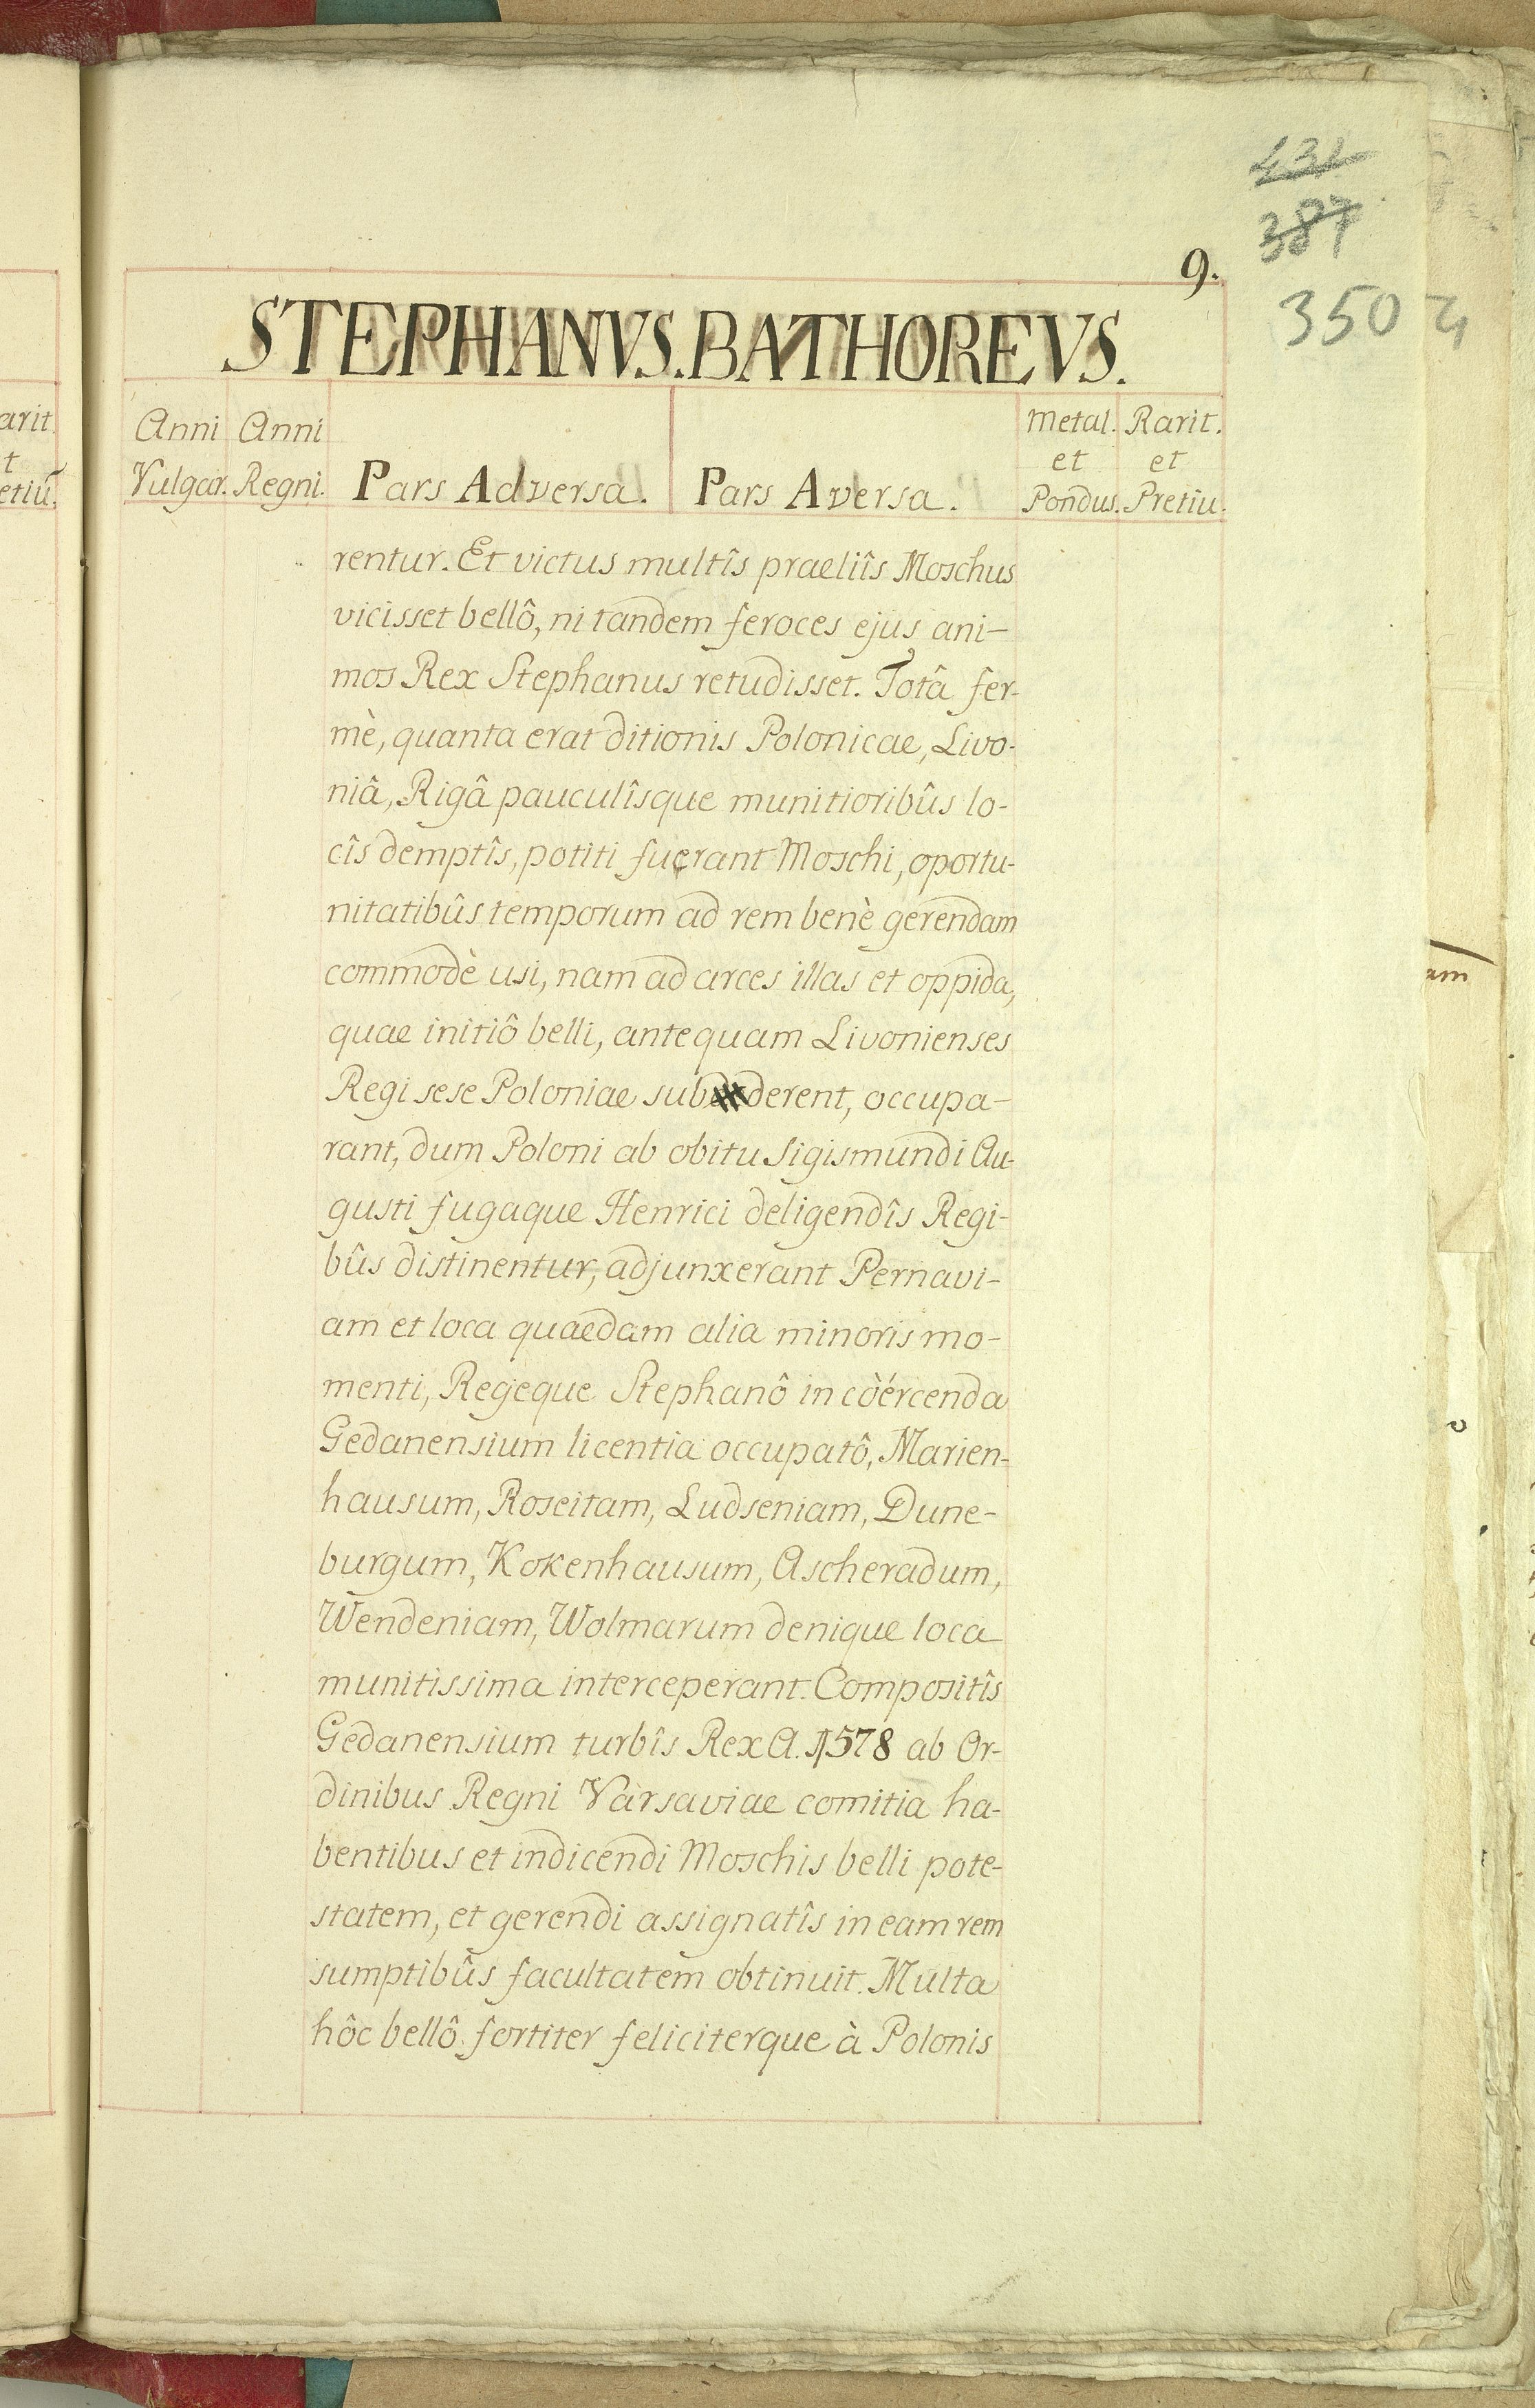 431
387
9.
350
STEPHANVS. BATHOREVS.
Anni Vulgar.
Anni Regni.
Pars Adversa.
Pars Aversa.
Metal. et Pondus.
Rarit. et Pretiu.
rentur. Et victus multîs praeliîs Moschus
vicisset bellô, ni tandem feroces ejus ani-
mos Rex Stephanus retudisset. Totâ fer-
mè, quanta erat ditionis Polonicae, Livo-
niâ, Rigâ pauculîsque munitioribûs lo-
cîs demptîs, potiti fuerant Moschi, oportu-
nitatibûs temporum ad rem benè gerendam
commodè usi, nam ad arces illas et oppida,
quae initiô belli, antequam Livonienses
Regi sese Poloniae subderent, occupa-
rant, dum Poloni ab obitu Sigismundi Au-
gusti fugaque Henrici deligendîs Regi-
bûs distinentur, adjunxerant Pernavi-
am et loca quaedam alia minoris mo-
menti, Regeque Stephanô in còércenda
Gedanensium licentia occupatô, Marien-
hausum, Roseitam, Ludseniam, Dune-
burgum, Kokenhausum, Ascheradum,
Wendeniam, Wolmarum denique loca
munitissima interceperant. Compositîs
Gedanensium turbîs Rex A. 1578 ab Or-
dinibus Regni Varsaviae comitia ha-
bentibus et indicendi Moschis belli pote-
statem, et gerendi assignatîs in eam rem
sumptibûs facultatem obtinuit. Multa
hôc bellô fortiter feliciterque à Polonis